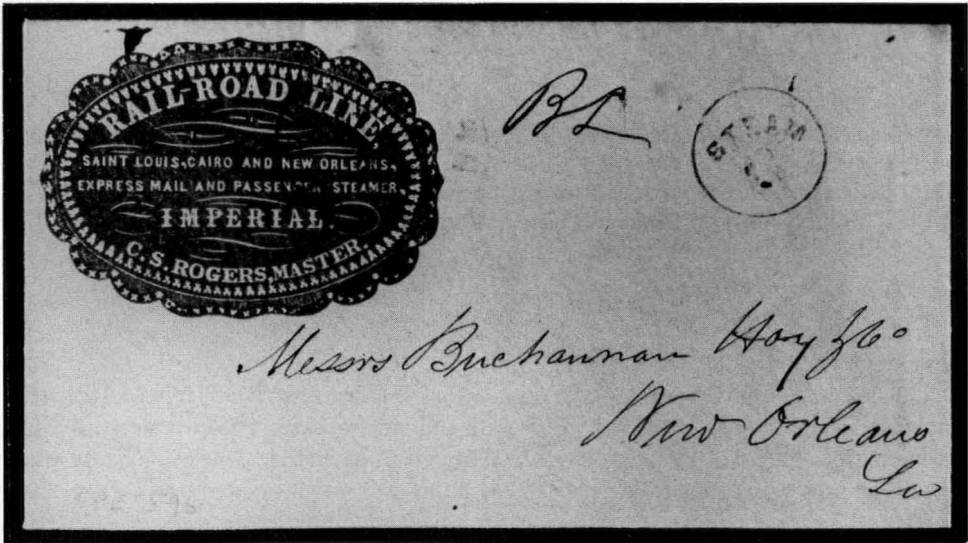 RAIL-ROAD LINE,
SAINT LOUIS, CAIRO AND NEW ORLEANS,
EXPRESS MAIL AND PASSENGER STEAMER,
IMPERIAL.
C. S. ROGERS, MASTER.
BL
STEAM
Messrs Buchannan Hoy & Co
New Orleans
La